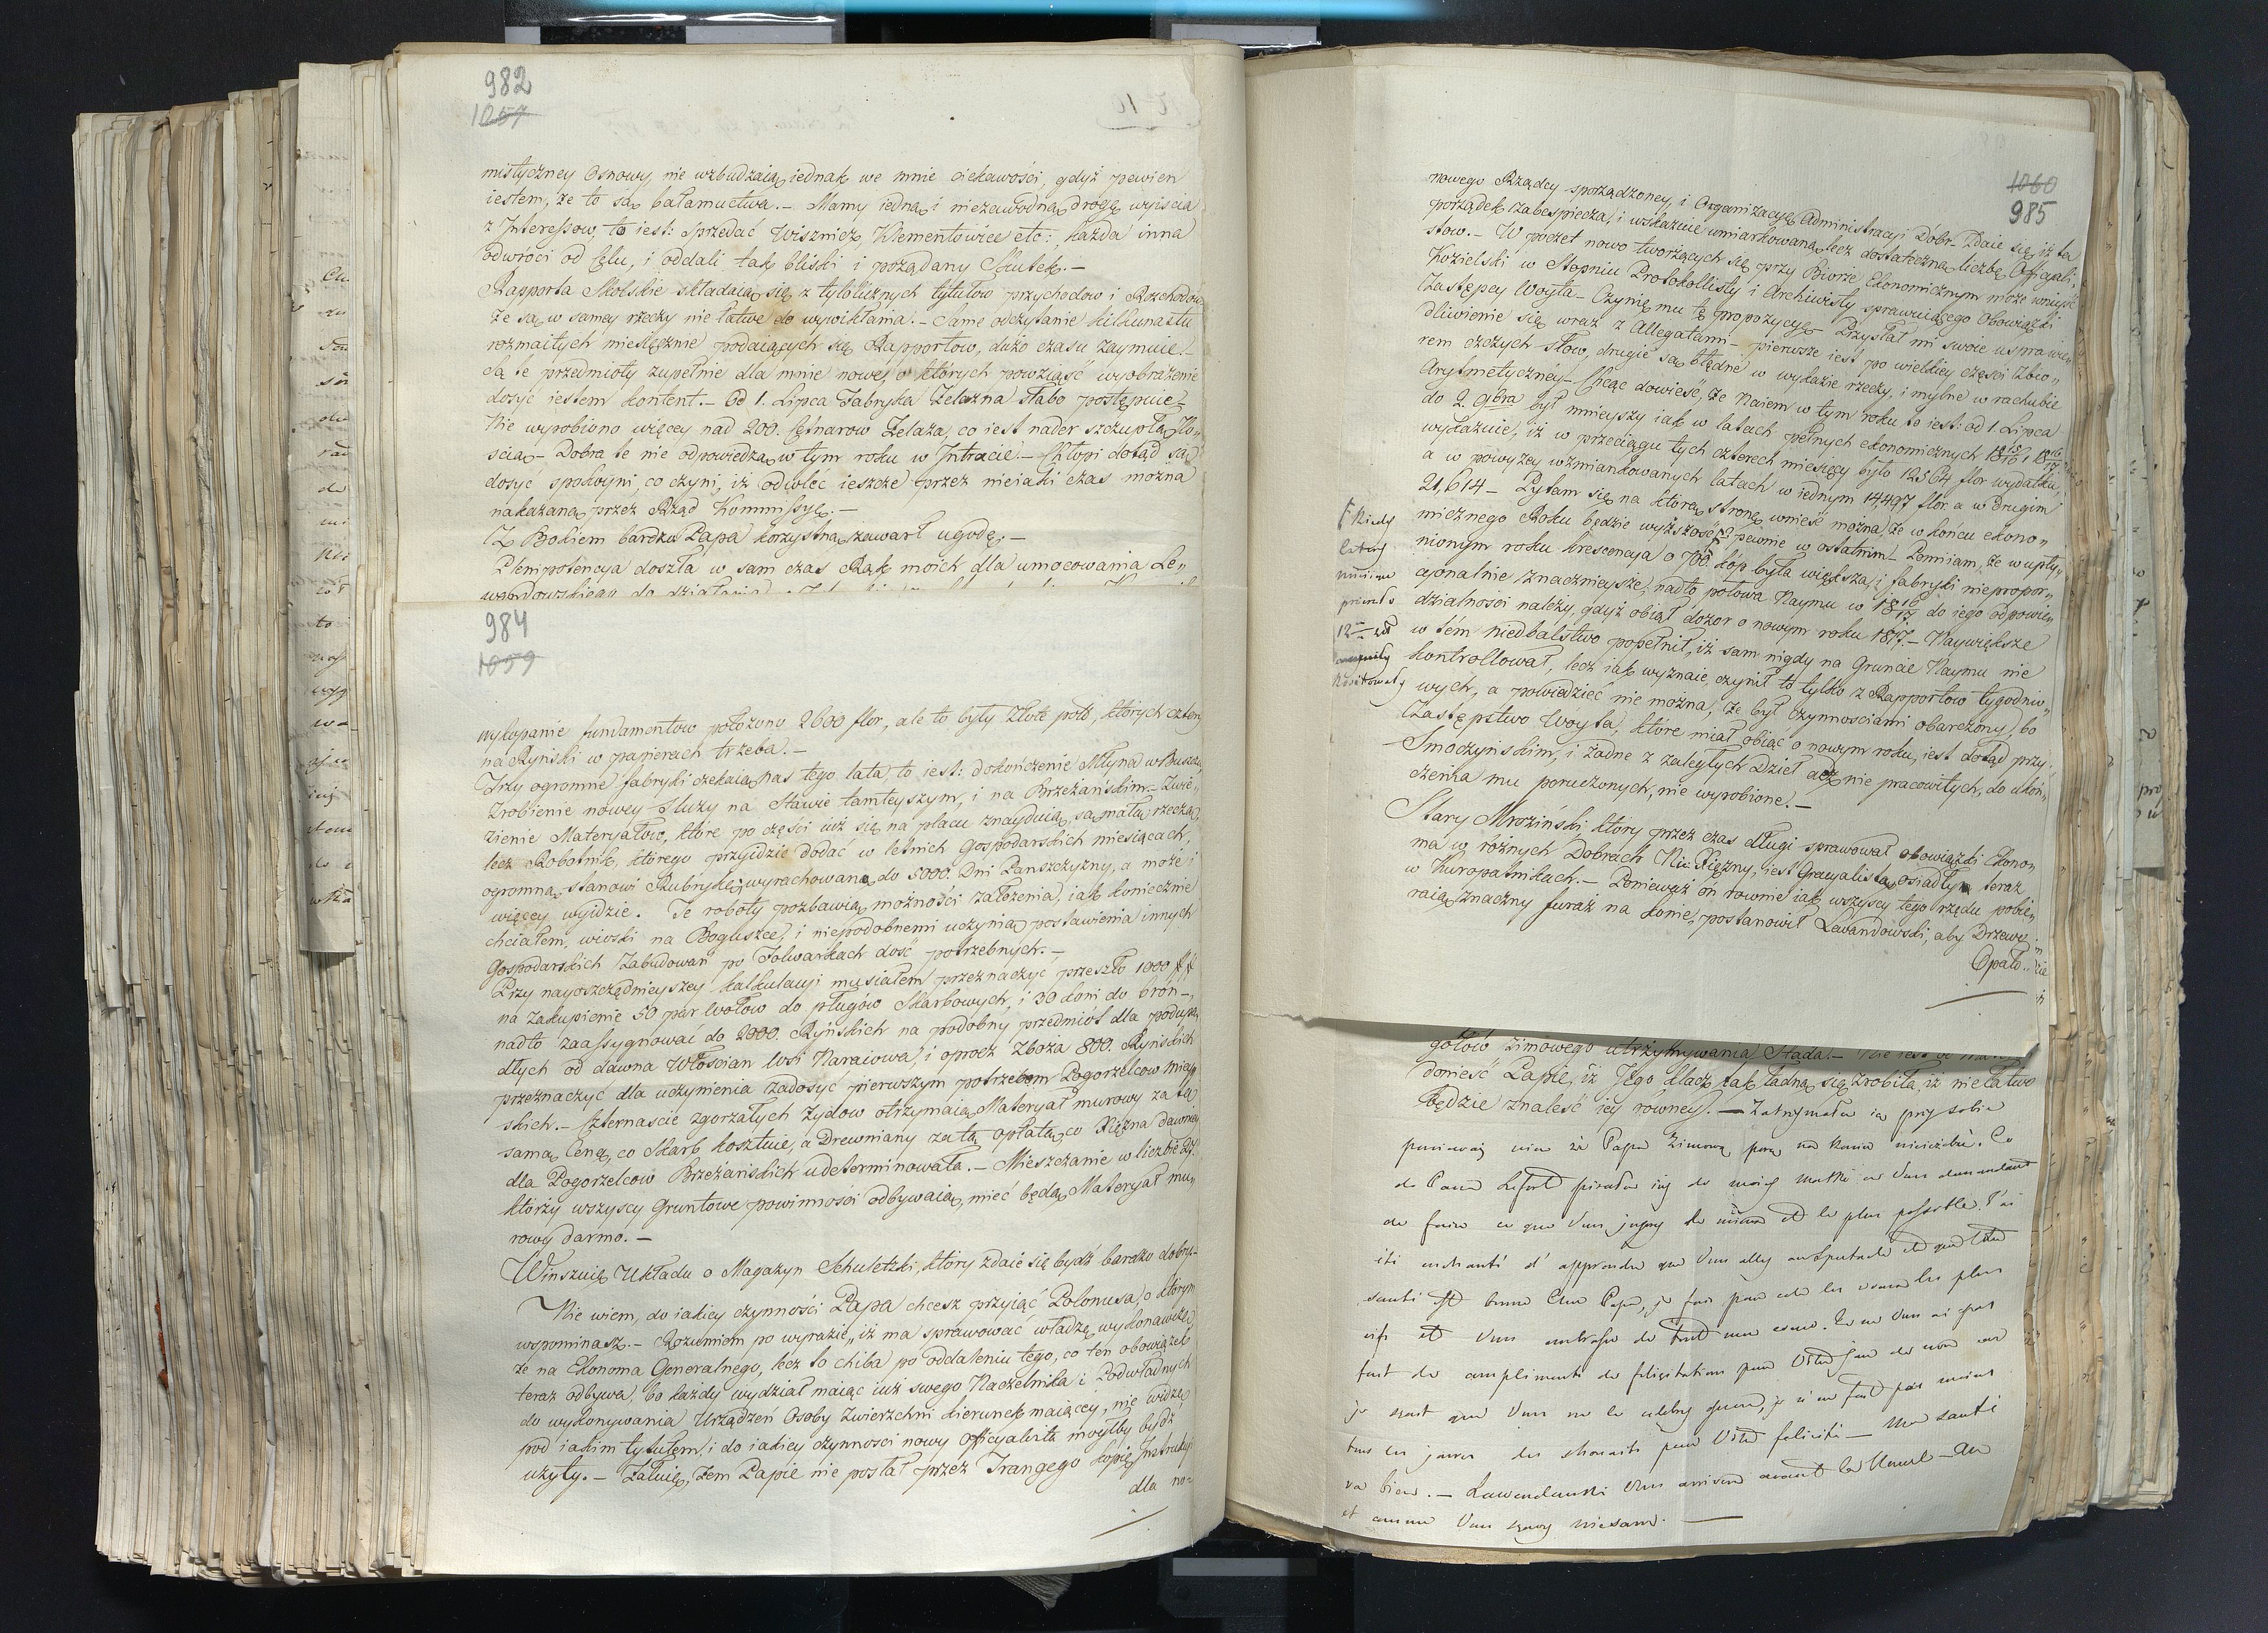 982
1057
mistyczney Osnowy, nie wzbudzaią iednak we mnie ciekawości, gdyż pewien
iestem, że to są bałamuctwa.— Mamy iedną i niezawodną drogę wyiścia
z Interessow, to iest: sprzedać Wisznicz, Klementowice etc: każda inna
odwróci od Celu, i oddali tak bliski i pożądany Skutek.—
Rapporta Skolskie składaią się z tylolicznych tytułow przychodow i Rozchodów
że są w samey rzeczy nie łatwe do wywikłania.— Same odczytanie kilkunastu
rozmaitych miesięcznie podaiących się Rapportow, dużo czasu zaymuie.—
Są te przedmioty zupełnie dla mnie nowe, o których powziąść wyobrażenie
dosyć iestem kontent.— Od 1. Lipca Fabryka Żelazna słabo postępuie,
Nie wyrobiono więcey nad 200. Cętnarow Żelaza, co iest nader szczupłą Ilo„
ścią.— Dobra te nie odpowiedzą w tym roku w Intracie.— Chłopi dotąd są
dosyć spokoyni, co czyni, iż odwléc ieszcze przez nieiaki czas można
nakazaną przez Rząd Kommissyę.—
Z Bokiem bardzo Papa korzystną zawarł ugodę.—
Plenipotencya doszła w sam czas Rąk moich dla umocowania Le„
984
1059
wykopanie fundamentow położono 2600 flor, ale to były Złote pols, których cztery
na Ryński w papierach trzeba.—
Trzy ogromne fabryki czekaią nas tego lata, to iest: dokończenie Młyna w Buszczu
Zrobienie nowey Sluzy na Stawie tamteyszym, i na Brzeżańskim.— Zwie„
zienie Materyałow, które po części iuż się na placu znayduią, są małą rzeczą,
lecz Robotnik, którego przyidzie dodać w letnich Gospodarskich miesiącach,
ogromną stanowi Rubrykę, wyrachowaną do 5000. Dni Panszczyzny, a może i
więcey wyidzie. Te roboty pozbawią możności założenia, iak koniecznie
chciałem, wioski na Boguszce, i niepodobnemi uczynią postawienia innych
Gospodarskich Zabudowań po Folwarkach dość potrzebnych.—
Przy nayoszczędnieyszey kalkulacyi musiałem przeznaczyć przeszło 1000 ##
na Zakupienie 50 par wołow do pługów Skarbowych, i 30 koni do bron—,
nadto zaassygnować do 2000. Ryńskich na podobny przedmiot dla podupa„
dłych od dawna Włościan wsi Naraiowa i oprocz Zboża 800. Ryńskich
przeznaczyć dla uczynienia zadosyć pierwszym potrzebom Pogorzelcow miey„
skich.— Czternascie zgorzałych Zydow otrzymaią Materyał murowy za tą
samą Cenę, co Skarb kosztuie, a Drewniany za tą opłatą, co Xiężna dawniey
dla Pogorzelcow Brzeżańskich udeterminowała.— Mieszczanie w liczbie 24.
którzy wszyscy Gruntowe powinności odbywaią, mieć będą Materyał mu„
rowy darmo.—
Winszuię Układu o Magazyn Schuletzki, który zdaie się bydź bardzo dobry.—
Nie wiem, do iakiey czynności Papa chcesz przyiąć Polonusa, o którym
wspominasz.— Rozumiem po wyrazie, iż ma sprawować władzę wykonawczą,
że na Ekonoma Generalnego, lecz to chiba po oddaleniu tego, co ten obowiązek
teraz odbywa, bo każdy wydział maiąc iuż swego Naczelnika i Podwładnych
do wykonywania Urządzeń Osoby Zwierzchni kierunek maiącey, nie widzę,
pod iakim tytułem, i do iakiey czynnosci nowy Officyalista mógłby bydź
użyty.— Żałuię, żem Papie nie posłał przez Frangego kopię Instrukcyi
dla no-
1060
985
nowego Rządcy sporządzoney, i Organizacyę Administracyi Dobr. Zdaie się, iż ta
porządek zabespiecza, i wskazuie umiarkowaną, lecz dostateczną liczbę Officyali„
stow.— W poczet nowo tworzących się przy Biorze Ekonomicznym może wniyść
Kozielski w Stopniu Protokollisty i Archiwisty sprawuiącego Obowiązki
Zastępcy Woyta.— Czynię mu tę propozycyę.— Przysłał mi swoie usprawie„
dliwienie się wraz z Allegatami.— pierwsze iest po wielkiey części Zbio„
rem czczych słow, drugie są błędne w wykazie rzeczy, i mylne w rachubie
Arytmetyczney.— Chcąc dowieść, że Naiem w tym roku to iest: od 1. Lipca
do 2. 9bra był mnieyszy iak w latach pełnych ekonomicznych 1815/16 i 1816/17
wykazuie, iż w przeciągu tych czterech miesięcy było 12564 flor wydatku,
a w powyżey wzmiankowanych latach w iednym 14,497 flor. a w Drugim
21,614— Pytam się, na którą stronę wnieść można, że w końcu ekono„
micznego Roku będzie wyższość? pewnie w ostatnim.— Pomiiam, że w upły„
nionym roku krescencya o 700. kóp była większa, i fabryki niepropor„
cyonalnie znacznieysze, nadto połowa Naymu w 1816/17 do iego odpowie„
dzialności należy, gdyż obiął dozor o nowym roku 1817.— Naywiększe
w tém niedbalstwo popełnił, iż sam nigdy na Gruncie Naymu nie
kontrollował, lecz iak wyznaie, czynił to tylko z Rapportow tygodnio„
wych, a powiedzieć nie można, że był czynnosciami obarczony, bo
Zastępstwo Woyta, które miał obiąć o nowym roku, iest dotąd przy
Smoczyńskim, i żadne z zaległych Dzieł acz nie pracowitych, do ukoń„
czenia mu poruczonych, nie wyrobione.—
Stary Mroziński, który przez czas długi sprawował obowiązki Ekono„
ma w różnych Dobrach Xiężny, iest Gracyalistą, osiadłym teraz
w Kuropatnikach.— Ponieważ on rownie iak wszyscy tego rzędu pobie„
raią znaczny furaż na konie, postanowił Lewandowski, aby Drzewo
Opało..
Kiedy
gotów zimowego utrzymywania Stada.—
donieść Papie, iż Jego klacz tak ładną się zrobiła, iż niełatwo
będzie znaleść iey równey.— Zatrzymałem ią przy sobie
Papa Zimową porą na koniu nieieździ. Co
de faire ce que Vous jugez et le plus possible. J'ai
été enchanté d'apprendre que Vous allez au Spectacle et que Votre
santé est bonne Cher Papa, je fais pour cela les vœux les plus
vifs et Vous embrasse de tout mon cœur. Je ne Vous ai pas
fait de compliments de félicitations pour Votre jour de nom
je sçait que Vous ne le célébrez je n'en fais pas moins
tous les jours des souhaits pour Votre félicité— Ma santé
va bien.— Lewandowski Vous avant le
et comme Vous